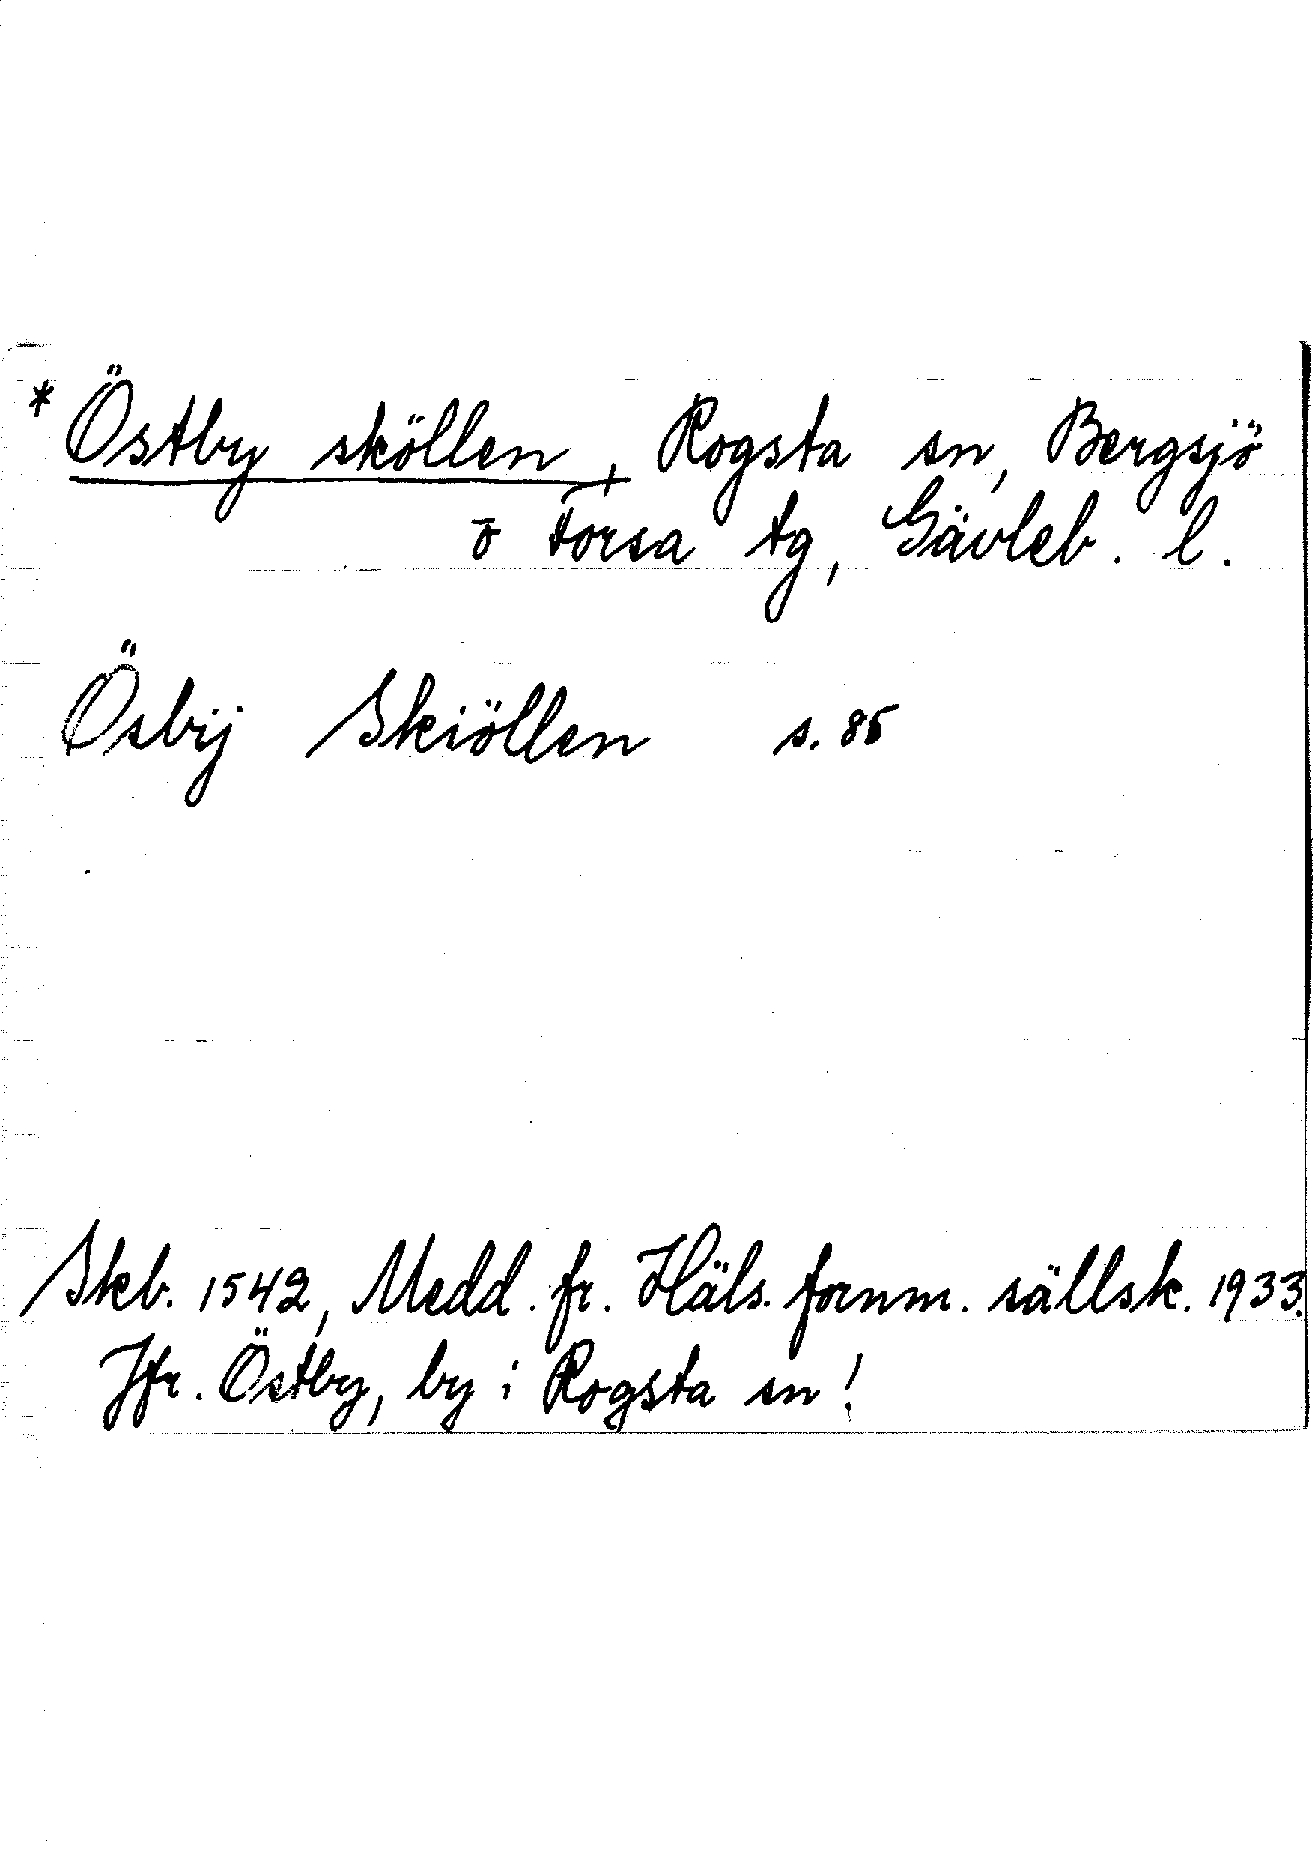 * Östby sköllen, Rogsta sn, Bergsjö
o Forsa tg, Gävleb. l.
Ösbij Skiöllen s. 85
Skb. 1542, Medd. fr. Häls. fornm. sällsk. 1933.
Jfr. Östby, by i Rogsta sn!